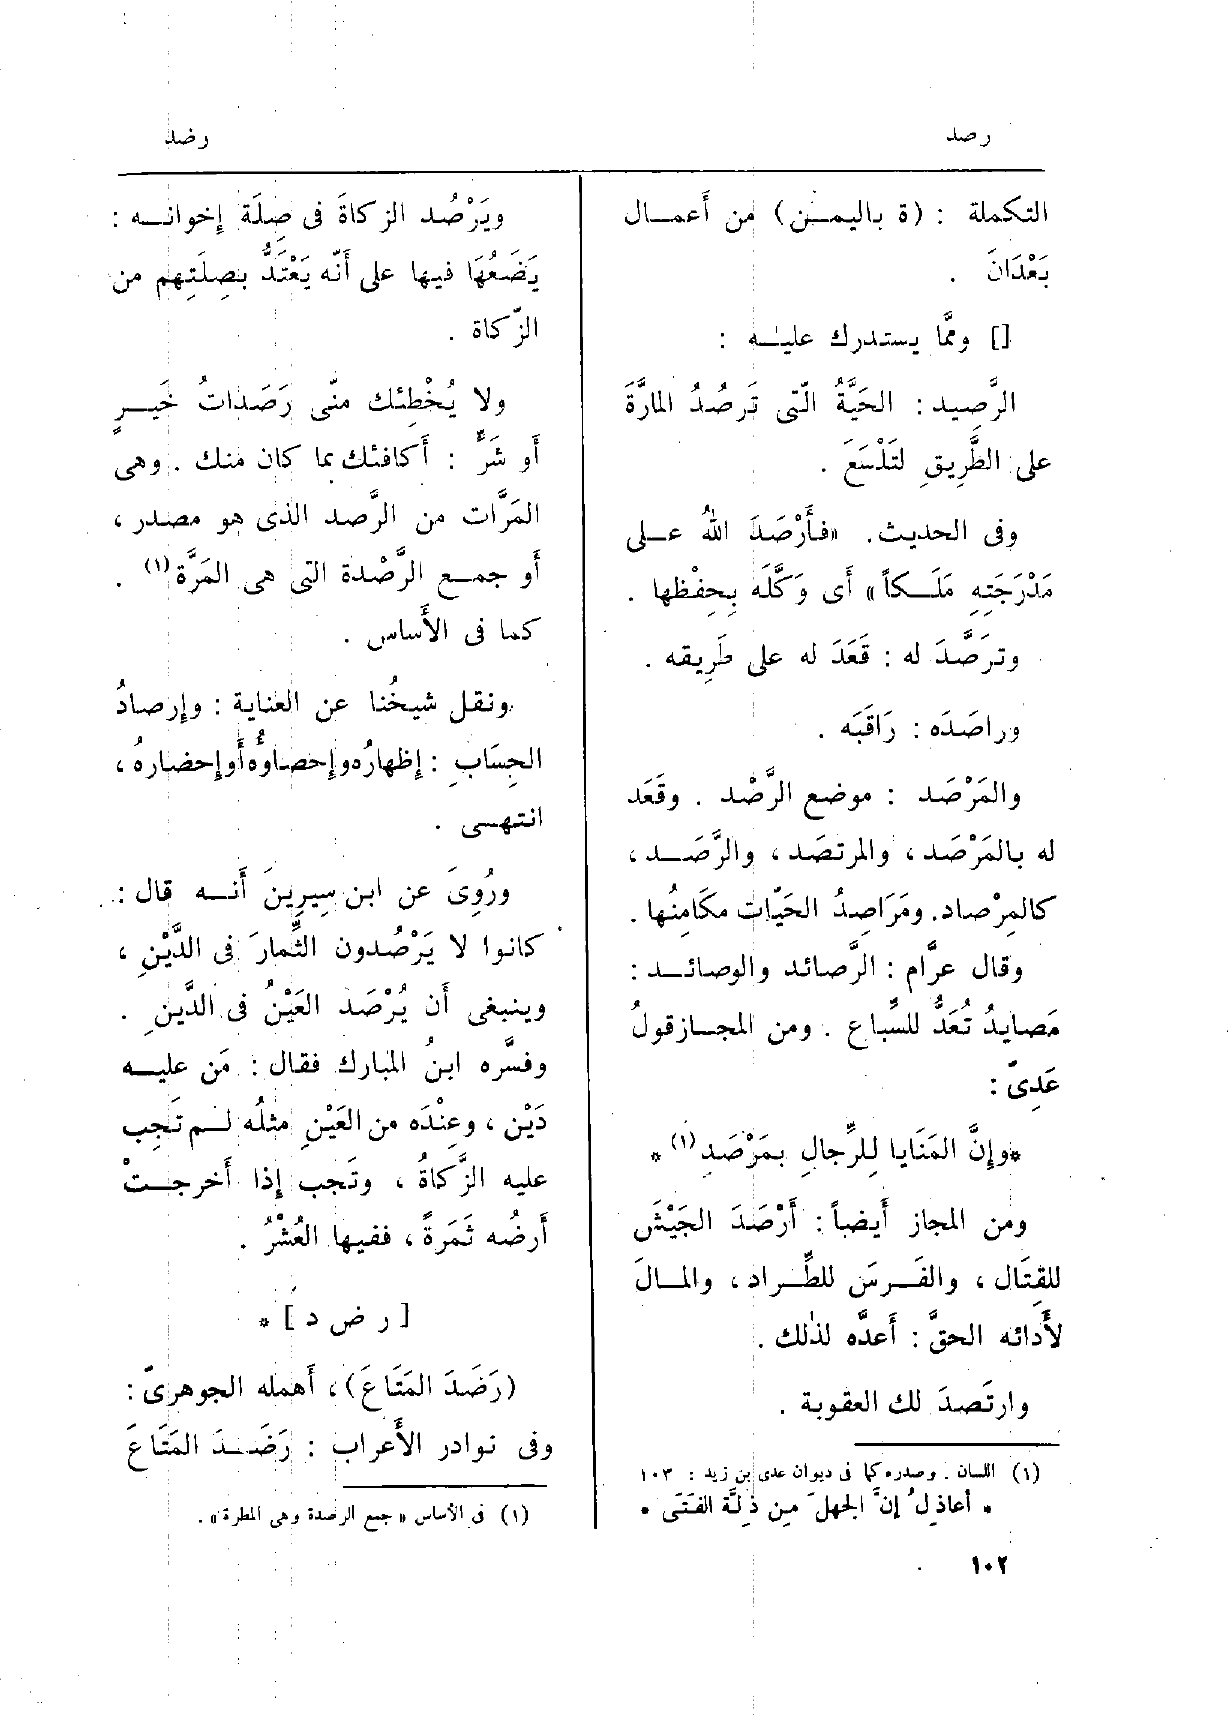 رصد
رضد
التكملة : (ة باليمن) من أعمال
بَعْدَانَ .
[] وممَّا يستدرك عليه :
الرَّصِيد : الحَيَّةُ الّتى تَرصُدُ المارَّةَ
على الطَّرِيقِ لتَلْسَعَ .
وفى الحديث. «فأَرْصَدَ اللهُ على
مَدْرَجَتِهِ مَلَكاً» أَى وَكَّلَه بِحِفْظِها .
وترَصَّدَ له : قَعَدَ له على طَرِيقه .
وراصَدَه : رَاقَبَه .
والمَرْصَد : موضع الرَّصْد . وقَعَد
له بالمَرْصَد ، والمرتصَد ، والرَّصَد ،
كالمِرْصاد. ومَرَاصِدُ الحَيّات مكَامِنُها .
وقال عرَّام : الرَّصائد والوصائد :
مَصايِدُ تُعَدُّ للسِّباع . ومن المجازقولُ
عَدِىّ :
*وإِنَّ المَنَايا لِلرِّجالِ بمَرْصَدِ (١) *
ومن المجاز أَيضاً : أَرْصَدَ الجَيْشَ
للقِتَال ، والفَرسَ للطِّراد ، والمالَ
لأَدائه الحقَّ : أَعدَّه لذلك .
وارتَصدَ لك العقوبة .
(١) اللسان . وصدره كما فى ديوان عدى بن زيد : ١٠٣
* أعاذِلُ إنَّ الجهلَ مِن ذِلَّة الفَتَى *
ويَرْصُد الزكاةَ فى صِلَة إِخوانه :
يَضَعُهَا فيها على أَنّه يَعْتَدُّ بصِلَتِهِم من
الزّكاة .
ولا يُخْطِئك منّى رَصَداتُ خَيرٍ
أَو شَرٍّ : أَكافئك بما كان منك . وهى
المَرَّات من الرَّصد الذى هو مصدر ،
أَو جمع الرَّصْدة التى هى المَرَّة (١) .
كما فى الأَساس .
ونقل شيخُنا عن العناية : وإِرصادُ
الحِسَابِ : إِظهارُه وإِحصاوُّه أَو إِحضارهُ ،
انتهى .
ورُوِىَ عن ابن سِيرِينَ أَنه قال :
كانوا لا يَرْصُدون الثِّمارَ فى الدَّيْنِ ،
وينبغى أَن يُرْصَد العَيْنُ فى الدَّينِ .
وفسَّره ابنُ المبارك فقال : مَن عليه
دَيْن ، وعِنْدَه من العَيْنِ مثلُه لم تَجِب
عليه الزَّكاةُ ، وتَجب إِذا أَخرجتْ
أَرضُه ثَمَرةً ، ففيها العُشْرُ .
[ ر ض د ] *
(رَضَدَ المَتَاعَ) ، أَهمله الجوهرىّ :
وفى نوادر الأَعراب : رَضَدَ المَتَاعَ
(١) فى الأساس «جمع الرصدة وهى المطرة» .
١٠٢